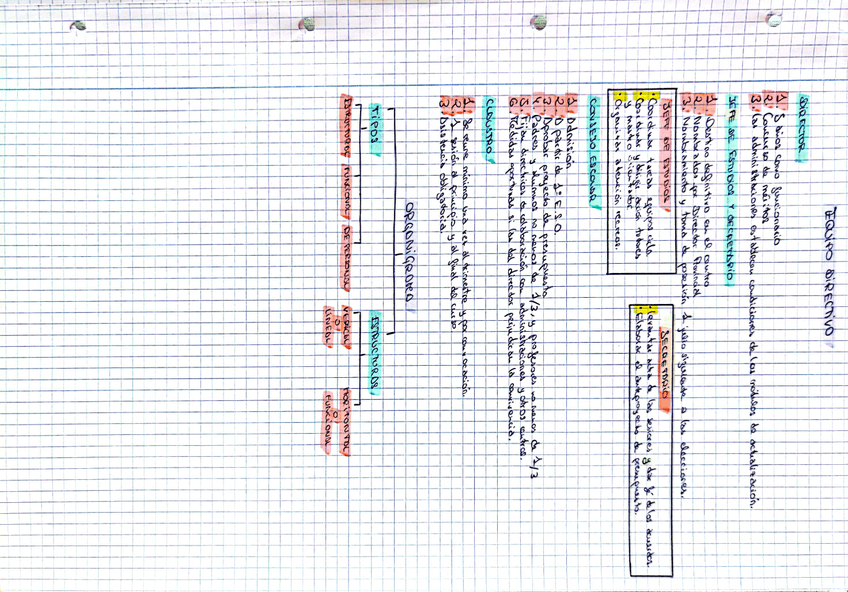 EQUIPO DIRECTIVO
DIRECTOR
1. 5 años como funcionario
2. Concurso de méritos
3. Las administraciones establecen condiciones de los módulos de actualización.
JEFE DE ESTUDIOS Y SECRETARIO
1. Destino definitivo en el centro
2. Nombrados por Director Provincial
3. Nombramiento y toma de posesión 1 julio siguiente a las elecciones.
JEFE DE ESTUDIOS
· Coordinar tareas equipos ciclo
· Coordinar y dirigir acción tutores
y maestro orientador
· Organizar atención recreos.
SECRETARIO
· Levantar acta de las sesiones y dar fé de los acuerdos
· Elaborar el anteproyecto de presupuesto.
CONSEJO ESCOLAR
1. Admisión
2. A partir de 1º E.S.O
3. Aprobar proyecto de presupuesto
4. Padres y alumnos no menos de 1/3, y profesores no menos de 1/3
5. Fijar directrices de colaboración con administraciones y otros centros.
6. Medidas oportunas si las del director perjudican la convivencia.
CLAUSTRO
1. Se reune mínimo una vez al trimestre y por convocación.
2. 1 sesión al principio y al final del curso
3. Asistencia obligatoria.
ORGANIGRAMA
TIPOS
ESTRUCTURAL
FUNCIONAL
DE PERSONAL
ESTRUCTURA
VERTICAL
O
LINEAL
HORIZONTAL
O
FUNCIONAL